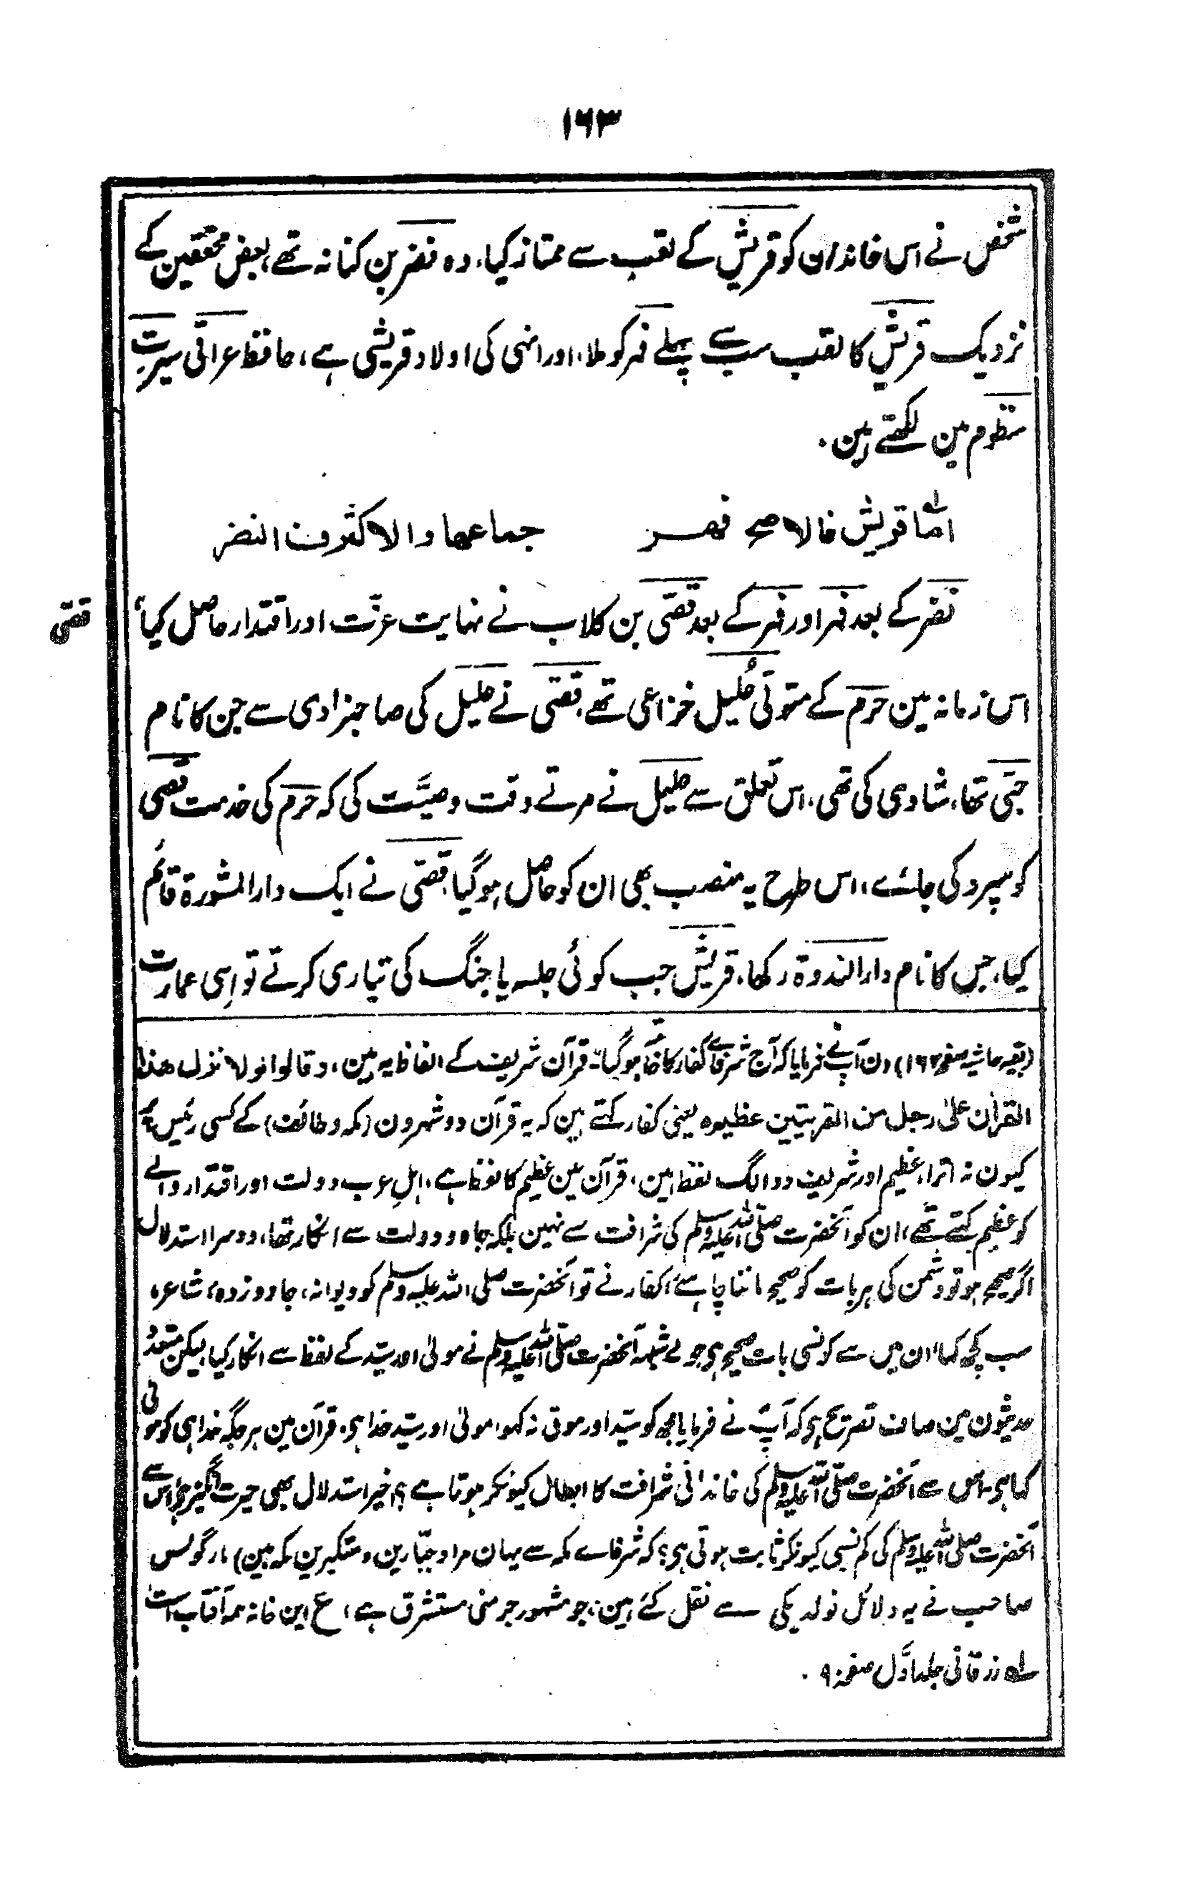 ۱۶۳
شخص نے اس خاندان کو قریش کے لقب سے ممتاز کیا، وہ نضر بن کنانہ تھے، بعض محققین کے
نزدیک قریش کا لقب سب سے پہلے فہر کو ملا، اور انہی کی اولاد قریشی ہے، حافظ عراقی سیرت
منظوم مین لکھتے ہین۔
اما قریش فالاصح فھر جماعھا والاکثرون النضر
نضر کے بعد فہر اور فہر کے بعد قصّی بن کلاب نے نہایت عزّت اور اقتدار حاصل کیا،
قصّی
اس زمانہ مین حرم کے متوّلی حُلیل خزاعی تھے، قصّی نے حلیل کی صاحبزادی سے جن کا نام
حبّی تھا، شادی کی تھی، اس تعلق سے حلیل نے مرتے وقت وصیّت کی کہ حرم کی خدمت قصّی
کو سپرد کی جائے، اس طرح یہ منصب بھی ان کو حاصل ہو گیا، قصّی نے ایک دار المشورة قائم
کیا، جس کا نام دار الندوة رکھا، قریش جب کوئی جلسہ یا جنگ کی تیاری کرتے تو اِسی عمارت
(بقیہ حاشیہ صفحہ ۱۶۲) دن آپ نے فرمایا کہ آج شرفائے کفار کا خاتمہ ہو گیا۔ قرآن شریف کے الفاظ یہ ہین، وقالوا لولا نزل ھذا
القرآن علیٰ رجل من القریتین عظیم ہ یعنی کفار کہتے ہین کہ یہ قرآن دو شہرون (مکہ و طائف) کے کسی رئیس پر
کیون نہ اترا، عظیم اور شریف دو الگ لفظ ہین، قرآن مین عظیم کا لفظ ہے، اہلِ عرب دولت اور اقتدار والے
کو عظیم کہتے تھے، ان کو آنحضرت صلّی اللہ علیہ وسلم کی شرافت سے نہین بلکہ جاہ و دولت سے انکار تھا، دوسرا استدلال
اگر صحیح ہو تو دشمن کی ہر بات کو صحیح ماننا چاہئے، کفار نے تو آنحضرت صلی اللہ علیہ وسلم کو دیوانہ، جادو زدہ، شاعر،
سب کچھ کہا، ان میں سے کونسی بات صحیح ہی جو بے شبہہ آنحضرت صلّی اللہ علیہ وسلم نے مولیٰ اور سیّد کے لفظ سے انکار کیا، لیکن متعدد
حدیثون مین صاف تصریح ہی کہ آپؐ نے فرمایا مجھ کو سیّد اور مولیٰ نہ کہو، مولیٰ اور سیّد خدا ہی، قرآن مین ہر جگہ خدا ہی کو مولیٰ
کہا ہی، اس سے آنحضرت صلّی اللہ علیہ وسلم کی خاندانی شرافت کا ابطال کیونکر ہوتا ہے؟ اخیر استدلال بھی حیرت انگیز ہی، اس سے
آنحضرت صلی اللہ علیہ وسلم کی کم نسبی کیونکر ثابت ہوتی ہی؟ کہ شرفائے مکہ سے یہان مراد جبّارین و متکبرین مکہ ہین) مارگولس
صاحب نے یہ دلائل نولدیکی سے نقل کئے ہین، جو مشہور جرمنی مستشرق ہے، ع این خانہ ہمہ آفتاب است
لے زرقانی جلد اوّل صفحہ ۹۰